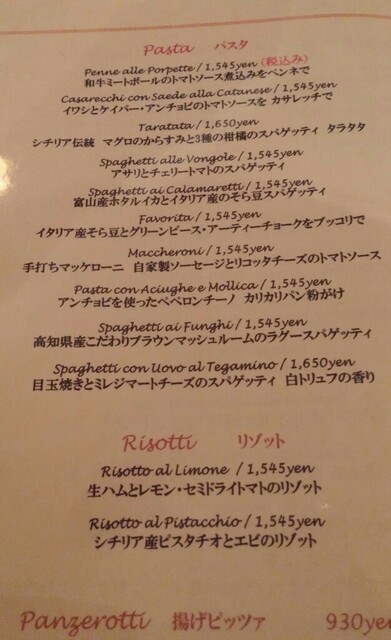 Pasta パスタ
Penne alle Porpette / 1,545yen (税込み)
和牛ミートボールのトマトソース煮込みをペンネで
Casarecchi con Saede alla Catanese / 1,545yen
イワシとケイパー・アンチョビのトマトソースを カサレッチで
Taratata / 1,650yen
シチリア伝統 マグロのからすみと3種の柑橘のスパゲッティ タラタタ
Spaghetti alle Vongole / 1,545yen
アサリとチェリートマトのスパゲッティ
Spaghetti ai Calamaretti / 1,545yen
富山産ホタルイカとイタリア産のそら豆スパゲッティ
Favorita / 1,545yen
イタリア産そら豆とグリーンピース・アーティーチョークをブッコリで
Maccheroni / 1,545yen
手打ちマッケローニ 自家製ソーセージとリコッタチーズのトマトソース
Pasta con Aciughe e Mollica / 1,545yen
アンチョビを使ったペペロンチーノ カリカリパン粉がけ
Spaghetti ai Funghi / 1,545yen
高知県産こだわりブラウンマッシュルームのラグースパゲッティ
Spaghetti con Uovo al Tegamino / 1,650yen
目玉焼きとミレジマートチーズのスパゲッティ 白トリュフの香り
Risotti リゾット
Risotto al Limone / 1,545yen
生ハムとレモン・セミドライトマトのリゾット
Risotto al Pistacchio / 1,545yen
シチリア産ピスタチオとエビのリゾット
Panzerotti 揚げピッツァ 930yen